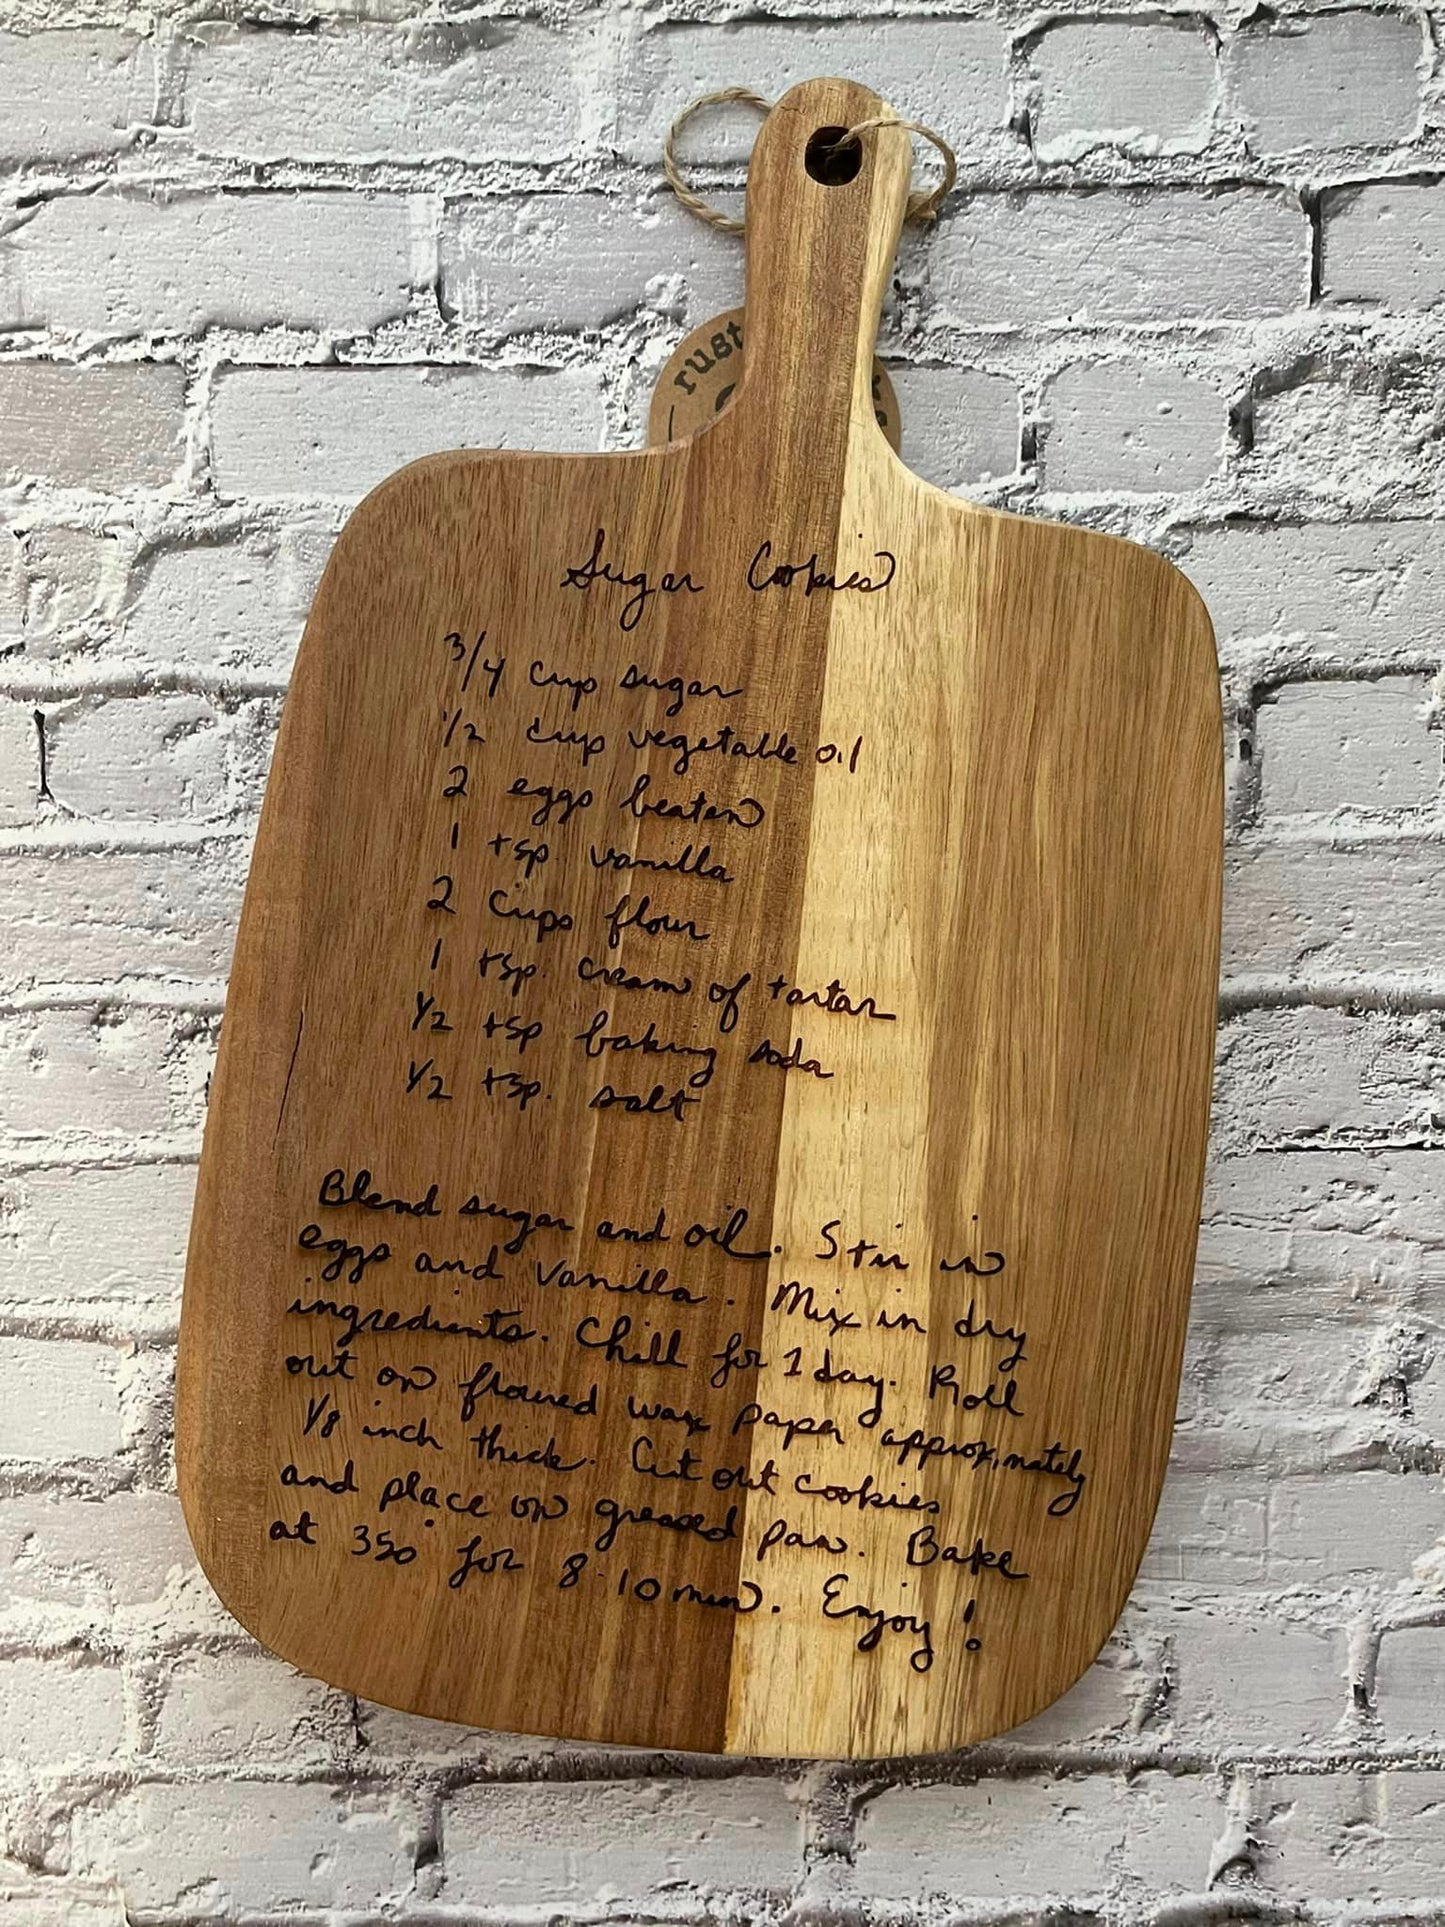 rust
Sugar Cookies
3/4 cup sugar
1/2 cup vegetable oil
2 eggs beaten
1 tsp. vanilla
2 cups flour
1 tsp. cream of tartar
1/2 tsp baking soda
1/2 tsp. salt
Blend sugar and oil. Stir in
eggs and vanilla. Mix in dry
ingredients. Chill for 1 day. Roll
out on floured wax paper approximately
1/8 inch thick. Cut out cookies
and place on greased pan. Bake
at 350° for 8-10 min. Enjoy!